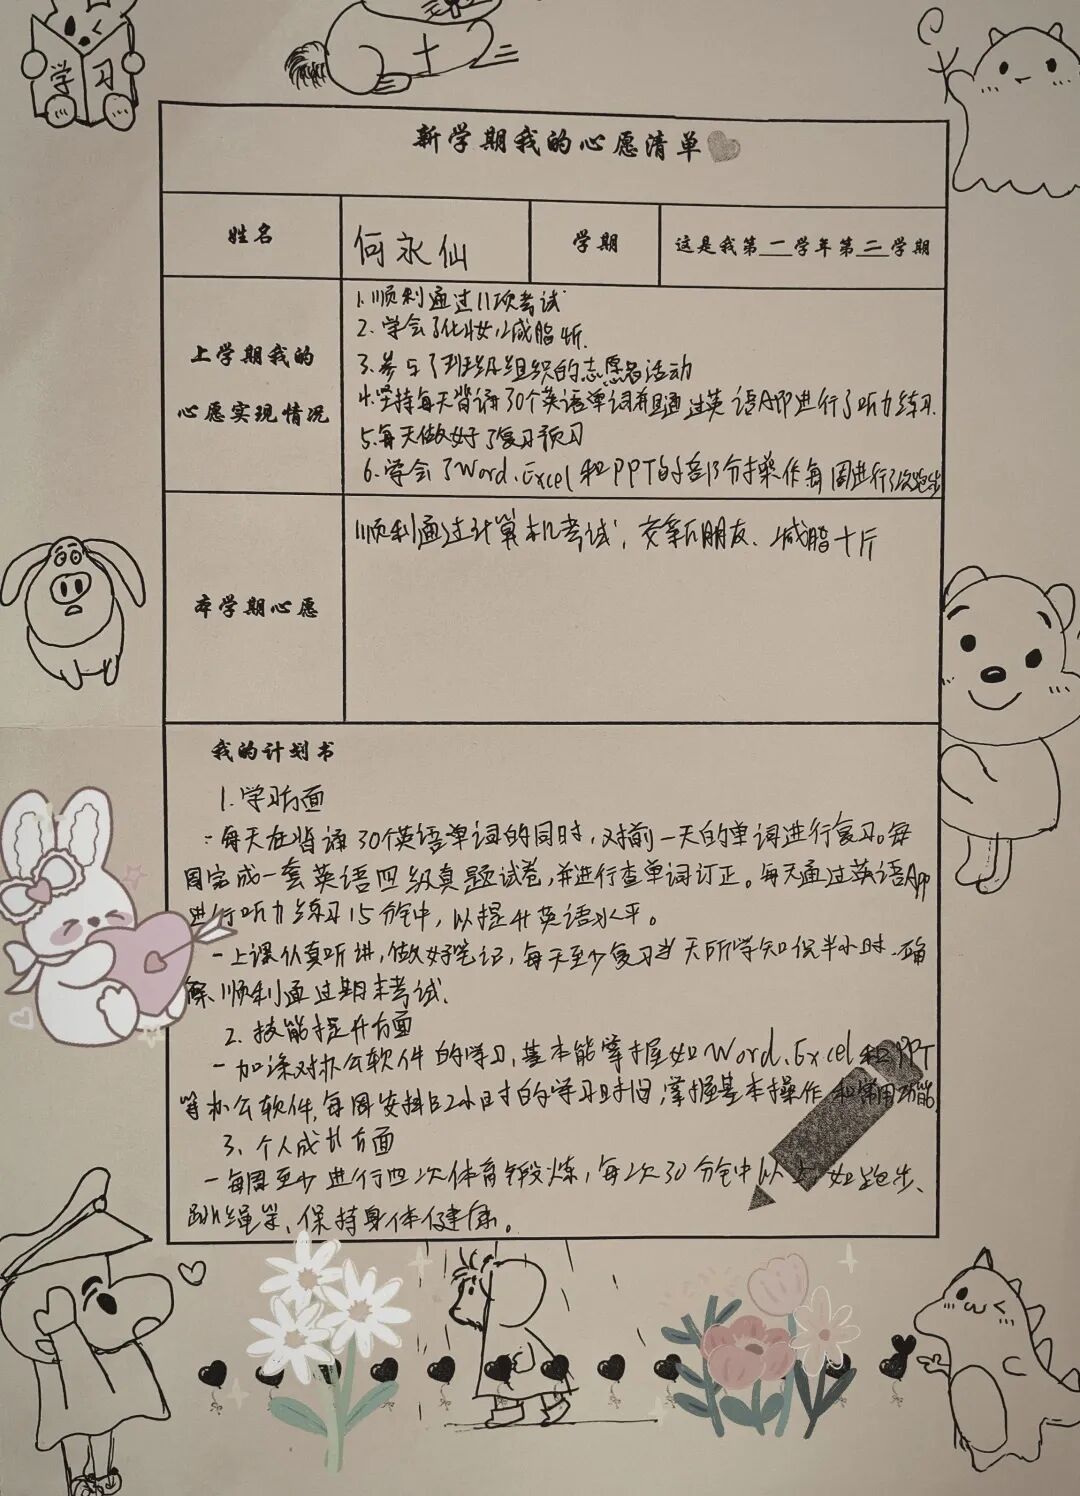 学习
士
新学期我的心愿清单
姓名
何永仙
学期
这是我第一学年第二学期
上学期我的
心愿实现情况
1.顺利通过11项考试
2.学会了化妆,减脂4斤.
3.参与了班级组织的志愿者活动
4.坚持每天背诵30个英语单词并且通过英语APP进行了听力练习.
5.每天做好了复习预习
6.学会了Word、Excel和PPT的部分操作每周进行了次跑步
本学期心愿
顺利通过计算机考试,交新的朋友、减脂十斤
我的计划书
1.学习方面
-每天在背诵30个英语单词的同时,对前一天的单词进行复习。每
周完成一套英语四级真题试卷,并进行查单词订正。每天通过英语App
进行听力练习15分钟,以提升英语水平。
-上课认真听讲,做好笔记,每天至少复习当天所学知识半小时.确
保顺利通过期末考试.
2.技能提升方面
-加深对办公软件的学习,基本能掌握如Word、Excel和PPT
等办公软件,每周安排2小时的学习时间,掌握基本操作和常用功能
3.个人成长方面
-每周至少进行四次体育锻炼,每次30分钟以上如跑步、
跳绳等,保持身体健康。